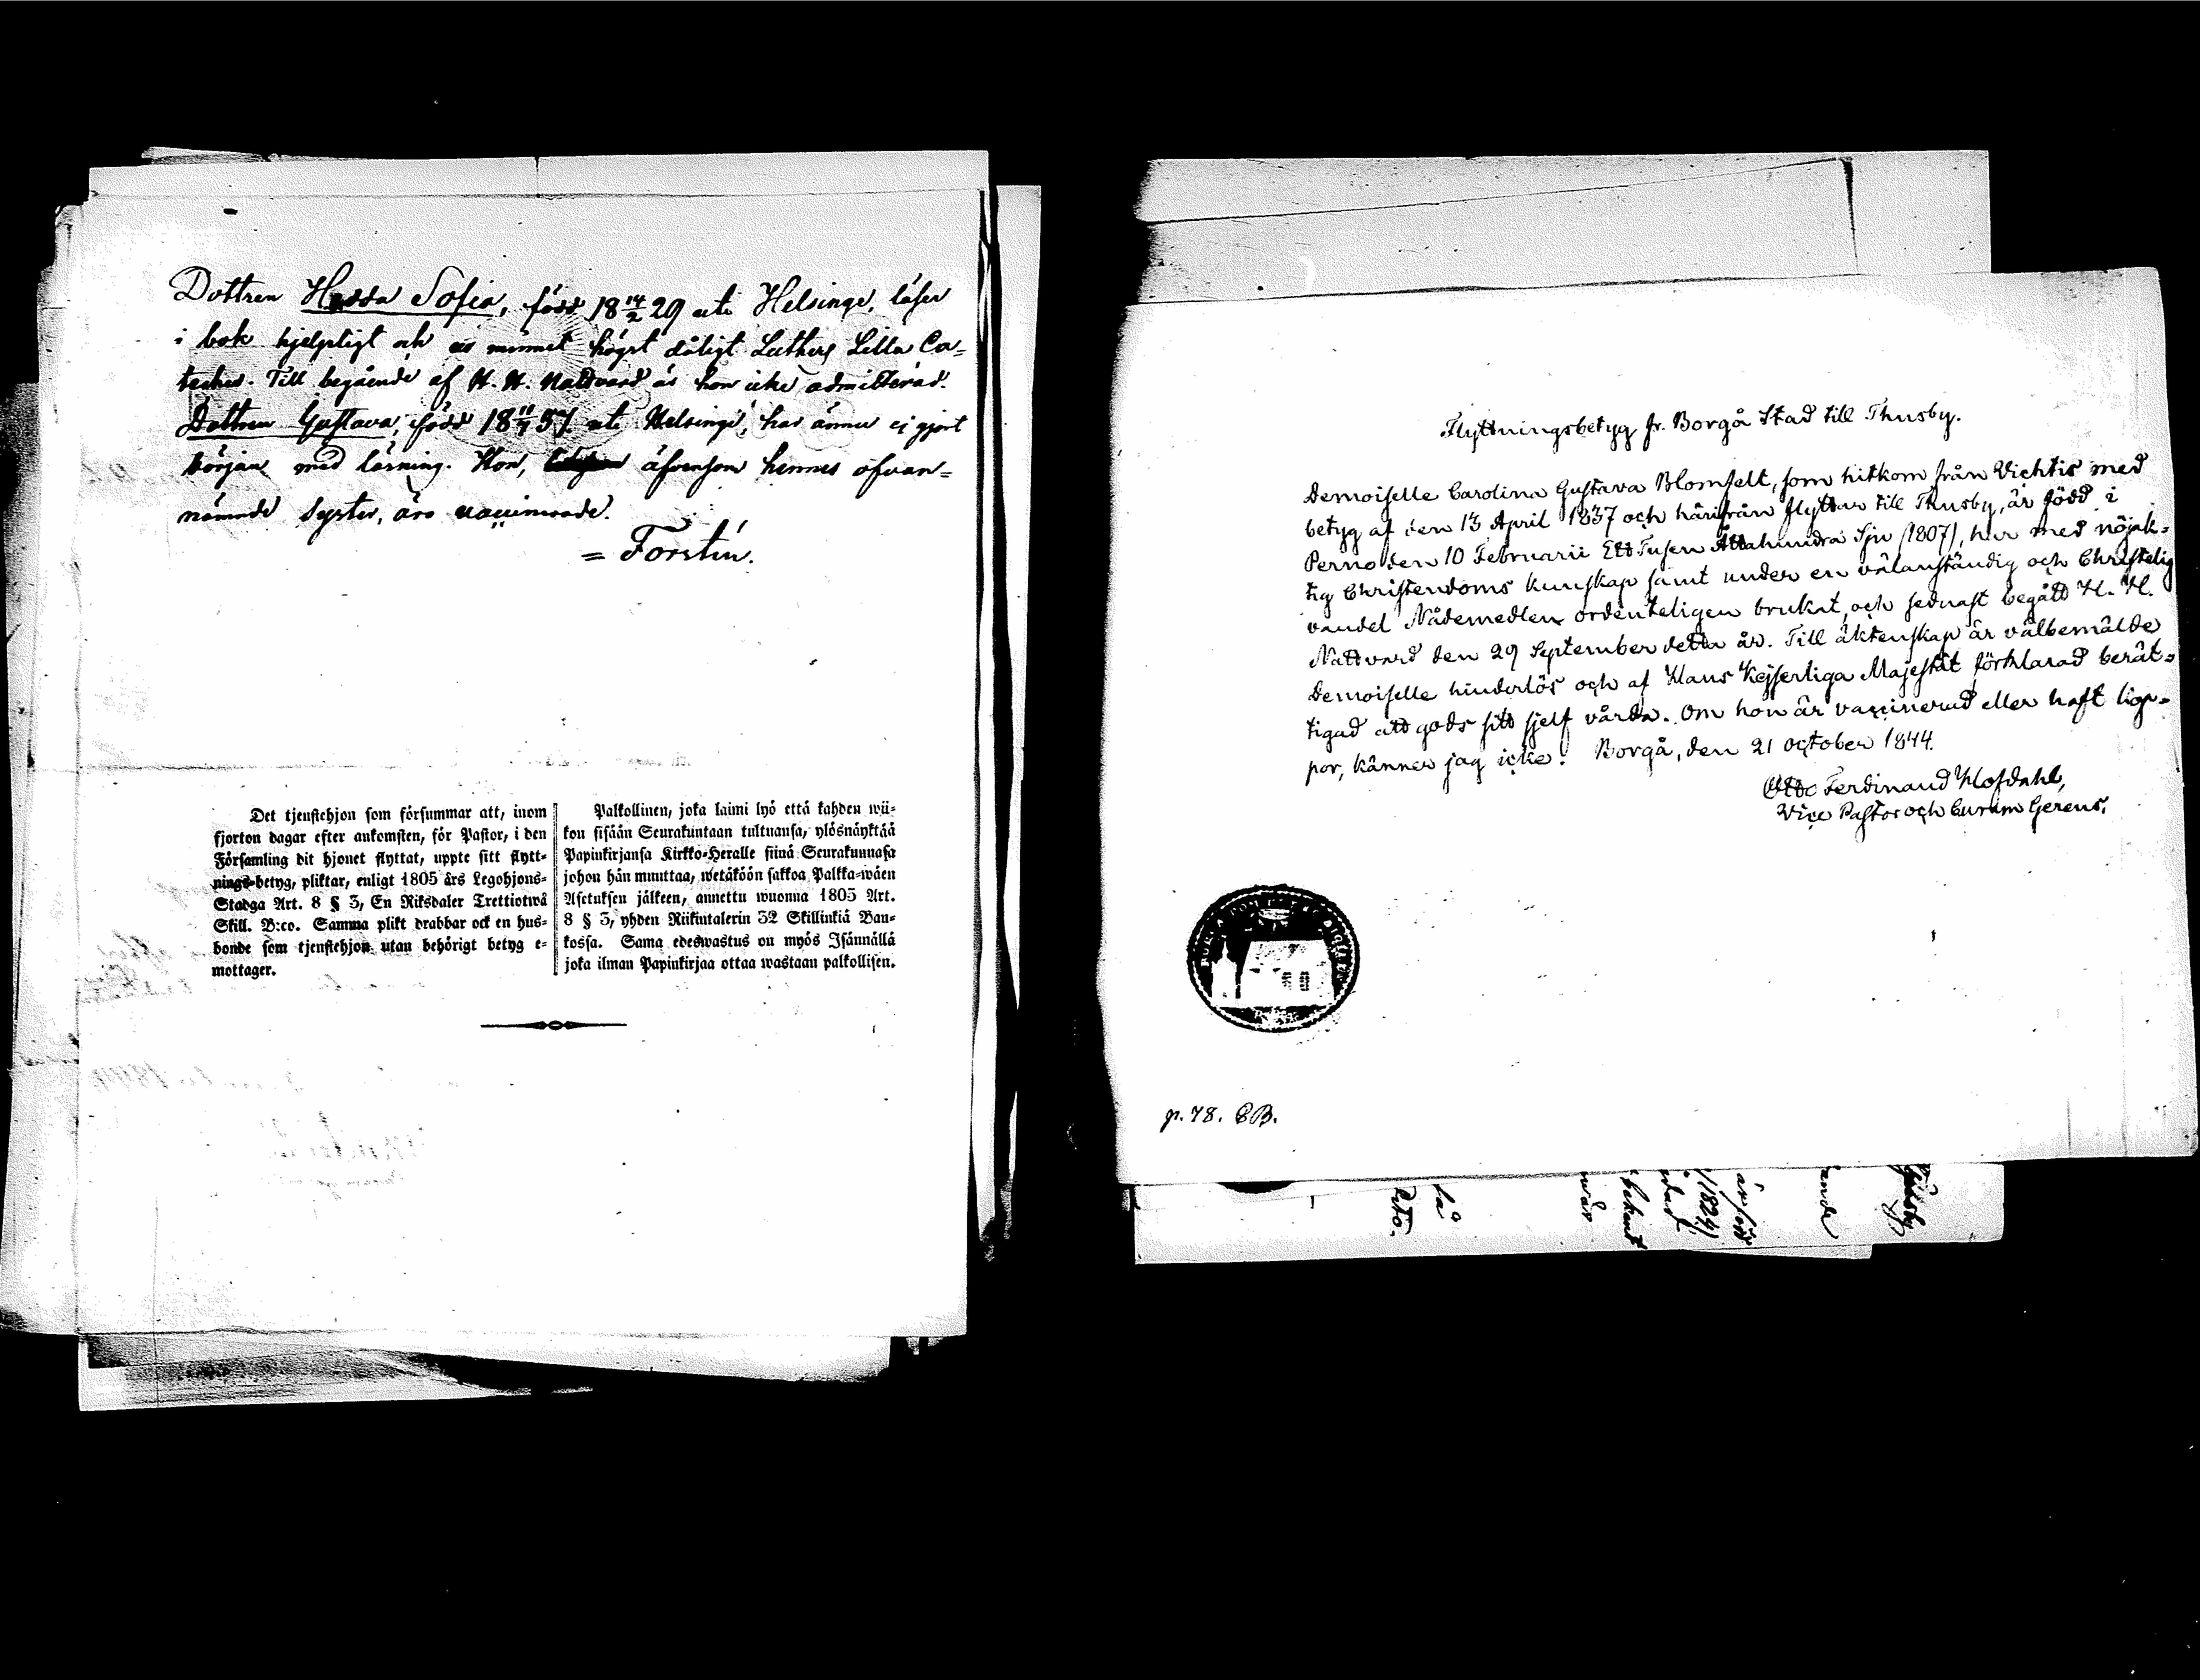 Dottren Hedda Sofia, född 18 14/2 29 uti Helsinge, läser
i bok hjelpligt och ur minnet högst dåligt Luthers Lilla Ca=
teches. Till begående af H. H. Nattvard är hon icke admitterad.
Dottren Gustava, född 18 11/7 37 uti Helsinge, har ännu ej gjort
början med läsning. Hon, äfvensom hennes ofvan=
nämnde syster, äro vaccinerade.
= Forstén.
Det tjenstehjon som försummar att, inom
fjorton dagar efter ankomsten, för Pastor, i den
Församling dit hjonet flyttat, uppte sitt flytt=
nings=betyg, pliktar, enligt 1805 års Legohjons=
Stadga Art. 8 § 3, En Riksdaler Trettiotwå
Skill. B:co. Samma plikt drabbar ock en hus=
bonde som tjenstehjon utan behörigt betyg e=
mottager.
Palkollinen, joka laimi lyö että kahden wii=
kon sisään Seurakuntaan tultuansa, ylösnäyttää
Papinkirjansa Kirkko=Heralle siinä Seurakunnasa
johon hän muuttaa, wetäköön sakkoa Palkka=wäen
Asetuksen jälkeen, annettu wuonna 1805 Art.
8 § 3, yhden Riikintalerin 32 Skillinkiä Ban=
kossa. Sama edeswastus on myös Isännällä
joka ilman Papinkirjaa ottaa wastaan palkollisen.
Flyttningsbetyg fr. Borgå Stad till Thusby.
Demoiselle Carolina Gustava Blomfelt, som hitkom från Vichtis med
betyg af den 13 April 1837 och härifrån flyttar till Thusby, är född i
Perno den 10 Februarii Ett Tusen Åttahundra Sju (1807), har med nöjak=
tig Christendoms kunskap samt under en välanständig och Christelig
vandel Nådemedlen ordenteligen brukat, och sednast begått H. H.
Nattvard den 29 September detta år. Till äktenskap är välbemälde
Demoiselle hinderlös och af Hans Kejserliga Majestät förklarad berät=
tigad att gods sitt sjelf vårda. Om hon är vaccinerad eller haft kop=
por, känner jag icke. Borgå, den 21 October 1844.
Otto Ferdinand Hofdahl,
Vice Pastor och Curam Gerens.
p. 78. CB.